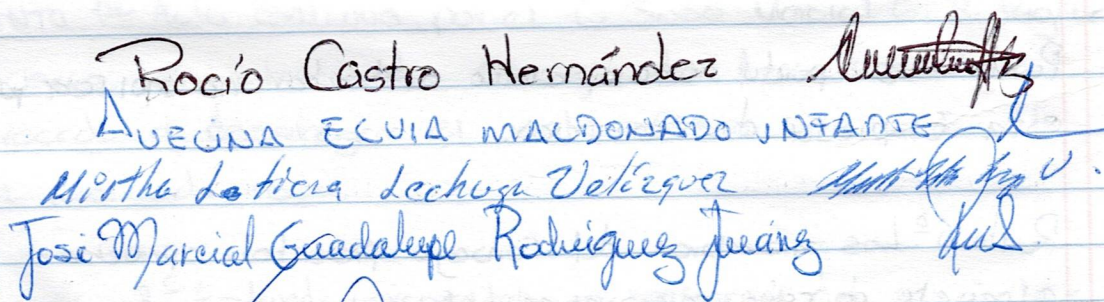 Rocío Castro Hernández
AVELINA ELVIA MALDONADO INFANTE
Mirtha Leticia Lechuga Velázquez
José Marcial Guadalupe Rodríguez Juárez